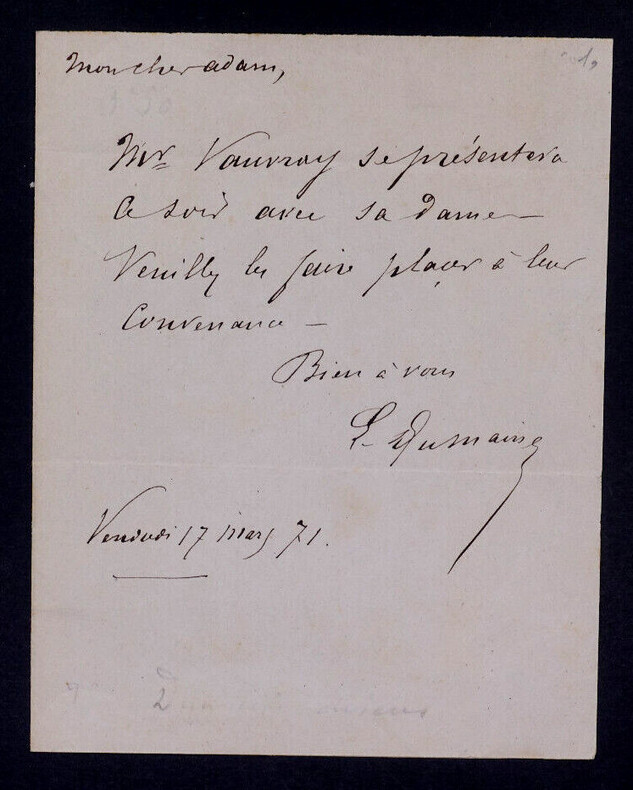 Mon cher adam,
Mr Vauvray se présentera
ce soir avec sa dame –
Veuillez les faire placer à leur
convenance –
Bien à vous
L. Dumaine
Vendredi 17 mars 71.